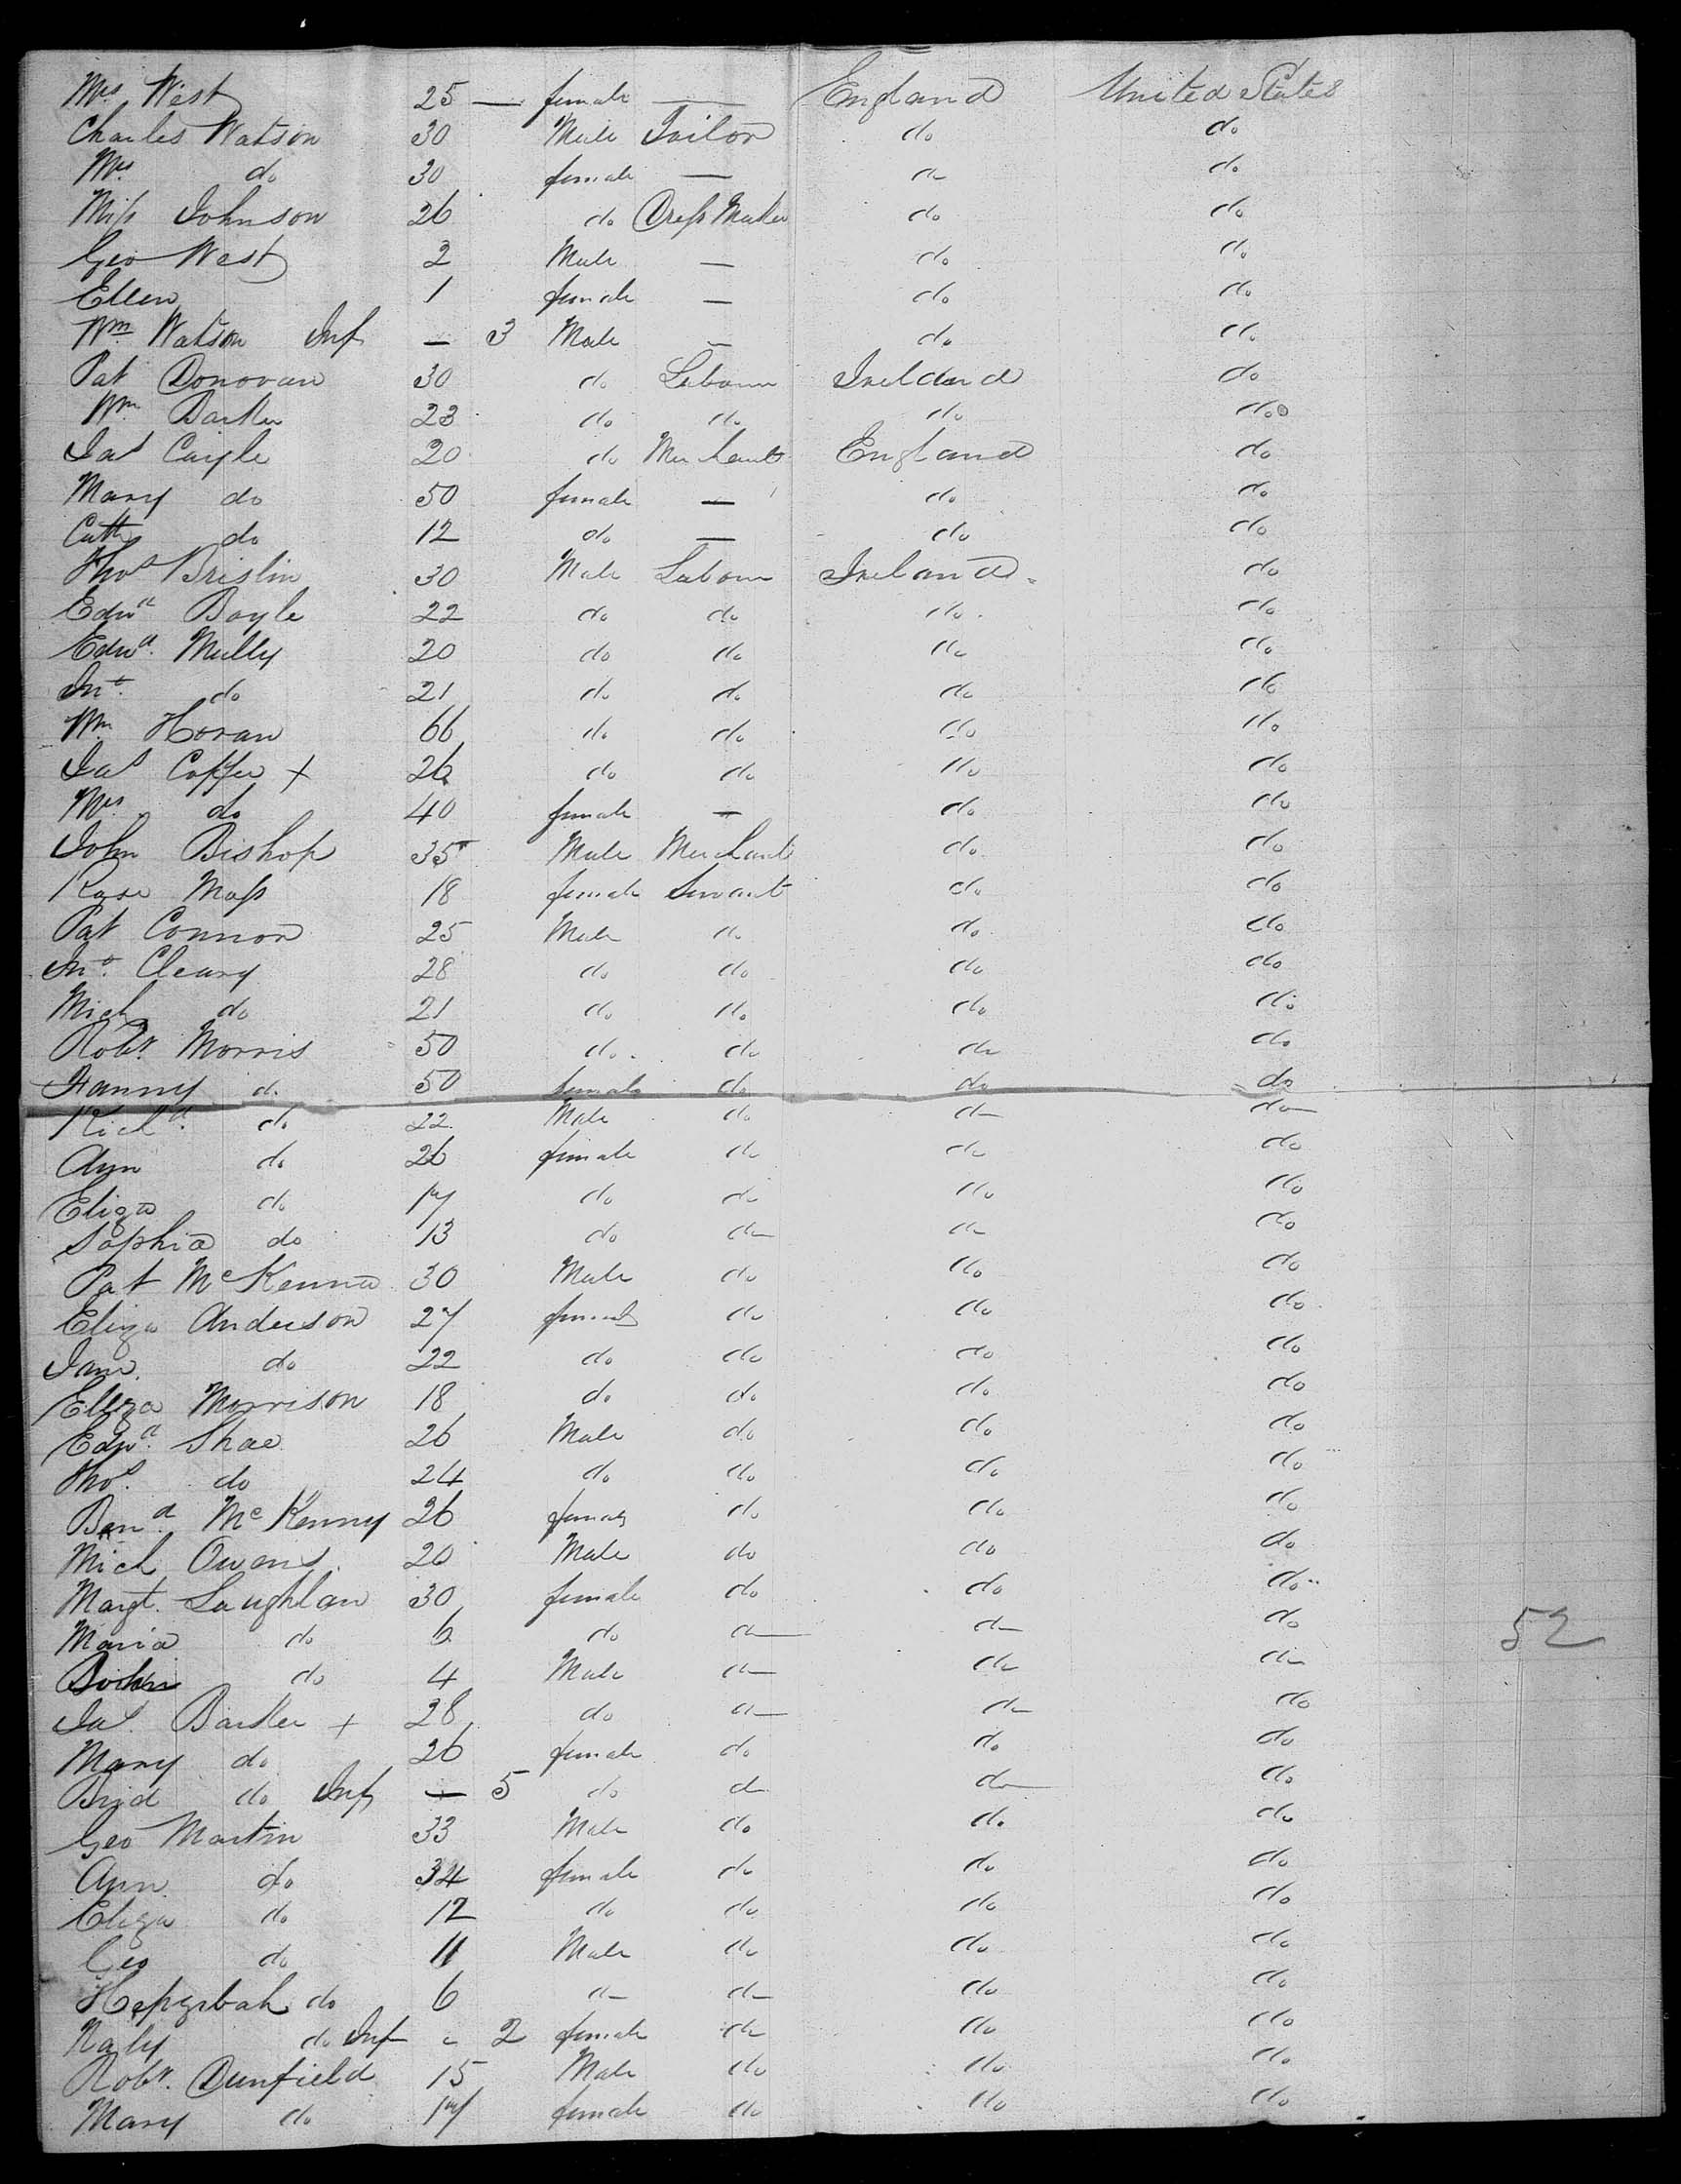 Mrs West 25 — female — England United States
Charles Watson 30 Male Tailor do do
Mrs do 30 female — do do
Miss Johnson 26 do Dress Maker do do
Geo West 2 Male — do do
Ellen 1 female — do do
Wm Watson Inf — 3 Male — do do
Pat Donovan 30 do Labour Ireland do
Wm Barker 23 do do do do
Jas Caigle 20 do Merchant England do
Mary do 50 female — do do
Cath do 12 do — do do
Thos Brislin 30 Male Labour Ireland do
Edwd Boyle 22 do do do do
Edwd. Mully 20 do do do do
Jno. do 21 do do do do
Wm Horan 66 do do do do
Jas Coffee + 26 do do do do
Mrs do 40 female — do do
John Bishop 35 Male Merchant do do
Rose Moss 18 female Servant do do
Pat Connor 25 Male do do do
Jno. Cleary 28 do do do do
Mich do 21 do do do do
Robt Morris 50 do do do do
Fanny do 50 female do do do
Richd. do 22 Male do do do
Ann do 26 female do do do
Eliza do 17 do do do do
Sophia do 13 do do do do
Pat McKenna 30 Male do do do
Eliza Anderson 27 female do do do
Jane do 22 do do do do
Eliza Morrison 18 do do do do
Edwd. Shae 26 Male do do do
Thos. do 24 do do do do
McKenny 26 female do do do
Mich Owens 20 Male do do do
Margt. Laughlan 30 female do do do
Maria do 6 do do do do
do 4 Male do do do
Jas. Barker + 28 do do do do
Mary do 26 female do do do
Brid do Inf — 5 do do do do
Geo Martin 33 Male do do do
Ann do 34 female do do do
Eliza do 12 do do do do
Geo do 11 Male do do do
Hepzibah do 6 do do do do
do Inf 2 female do do do
Robt. Dunfield 15 Male do do do
Mary do 17 female do do do
52